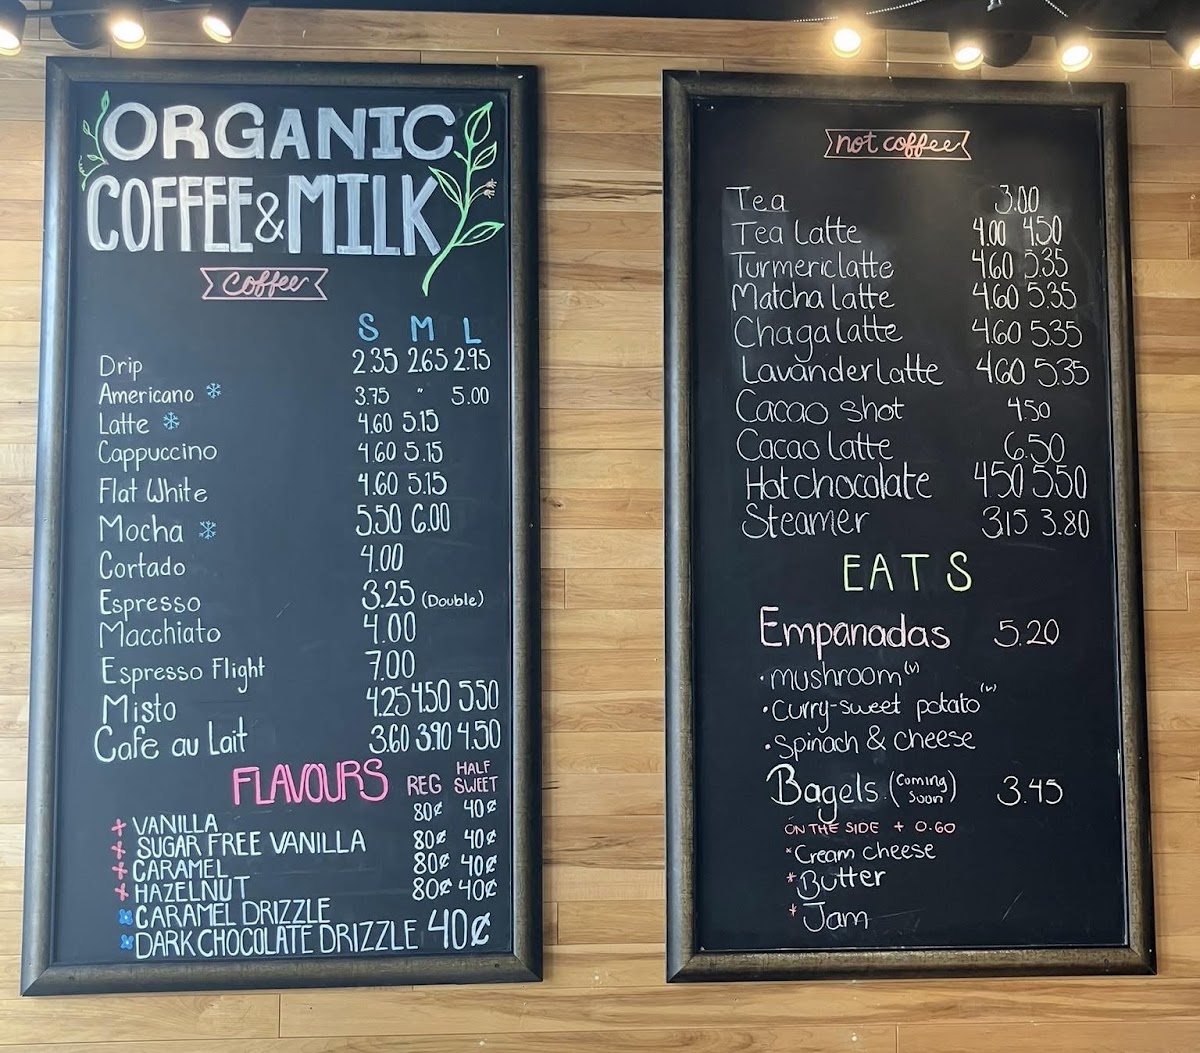 ORGANIC
COFFEE & MILK
coffee
S M L
Drip 2.35 2.65 2.95
Americano 3.75 " 5.00
Latte 4.60 5.15
Cappuccino 4.60 5.15
Flat White 4.60 5.15
Mocha 5.50 6.00
Cortado 4.00
Espresso 3.25 (Double)
Macchiato 4.00
Espresso Flight 7.00
Misto 4.25 4.50 550
Cafe au Lait 3.60 3.90 4.50
FLAVOURS REG HALF SWEET
VANILLA 80¢ 40¢
SUGAR FREE VANILLA 80¢ 40¢
CARAMEL 80¢ 40¢
HAZELNUT 80¢ 40¢
CARAMEL DRIZZLE
DARK CHOCOLATE DRIZZLE 40¢
not coffee
Tea 3.00
Tea Latte 4.00 4.50
Turmeric latte 4.60 5.35
Matcha latte 4.60 5.35
Chaga latte 4.60 5.35
Lavander latte 4.60 5.35
Cacao shot 4.50
Cacao latte 6.50
Hot chocolate 450 550
Steamer 3.15 3.80
EATS
Empanadas 5.20
· mushroom (v)
· Curry-sweet potato (v)
· Spinach & cheese
Bagels (Coming Soon) 3.45
ON THE SIDE + 0.60
* Cream cheese
* Butter
* Jam